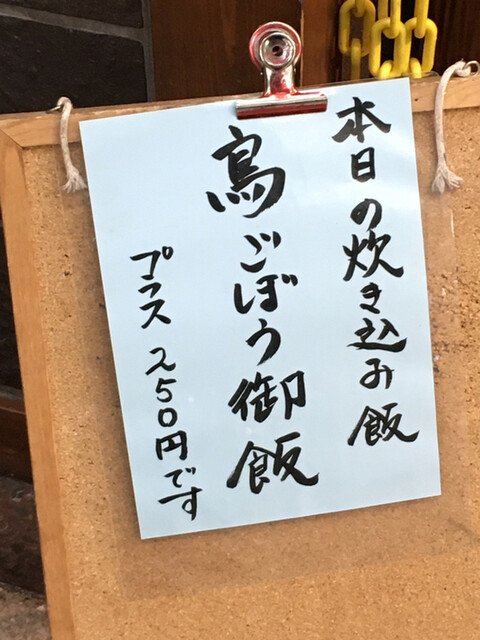 本日の炊き込み飯
鳥ごぼう御飯
プラス250円です